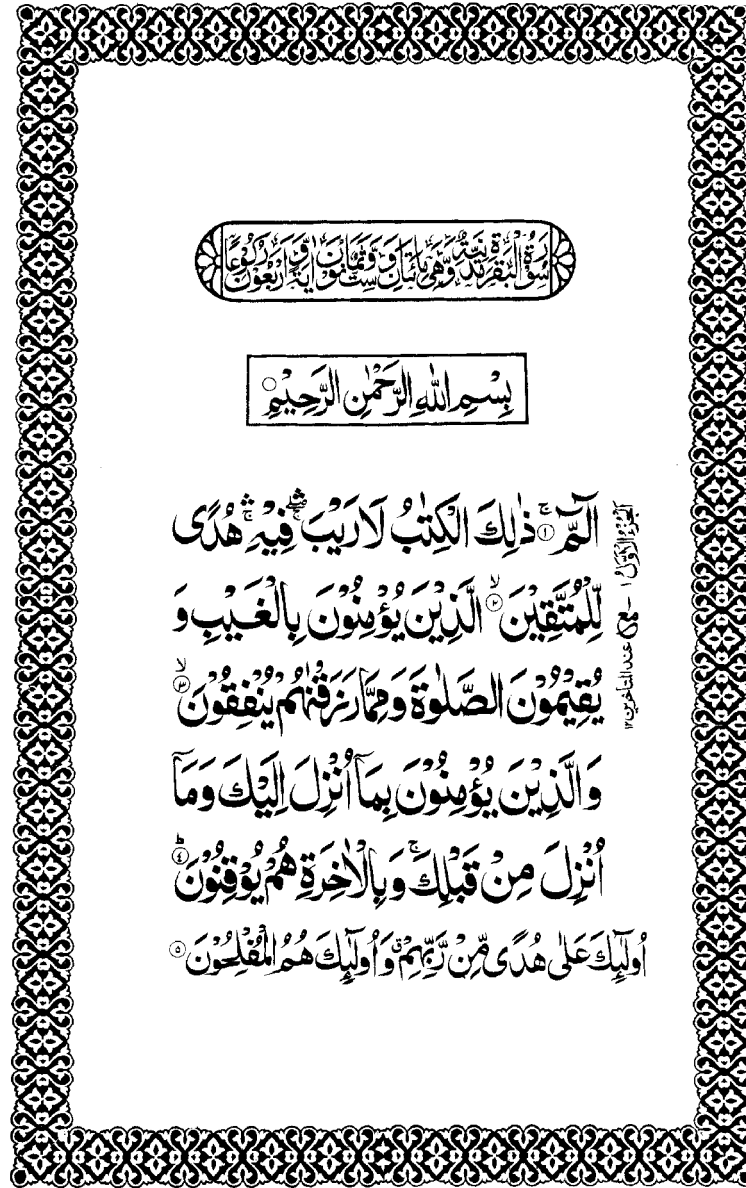 سُوْرَةُ الْبَقَرَةِ مَدَنِيَّةٌ وَّهِيَ مِائَتَانِ وَسِتٌّ وَّثَمَانُوْنَ اٰيَةً وَّاَرْبَعُوْنَ رُكُوْعًا
بِسْمِ اللّٰهِ الرَّحْمٰنِ الرَّحِيْمِ ۝
الٓمّٓ ۚ۝١ ذٰلِكَ الْكِتٰبُ لَا رَيْبَ ۛۖۚ فِيْهِ ۛۚ هُدًى
لِّلْمُتَّقِيْنَ ۙ۝٢ الَّذِيْنَ يُؤْمِنُوْنَ بِالْغَيْبِ وَ
يُقِيْمُوْنَ الصَّلٰوةَ وَمِمَّا رَزَقْنٰهُمْ يُنْفِقُوْنَ ۙ۝٣
وَالَّذِيْنَ يُؤْمِنُوْنَ بِمَآ اُنْزِلَ اِلَيْكَ وَمَآ
اُنْزِلَ مِنْ قَبْلِكَ ۚ وَبِالْاٰخِرَةِ هُمْ يُوْقِنُوْنَ ؕ۝٤
اُولٰٓئِكَ عَلٰى هُدًى مِّنْ رَّبِّهِمْ ۗ وَاُولٰٓئِكَ هُمُ الْمُفْلِحُوْنَ ۝٥
الجزء الاول ١
عند المتاخرين ١٢